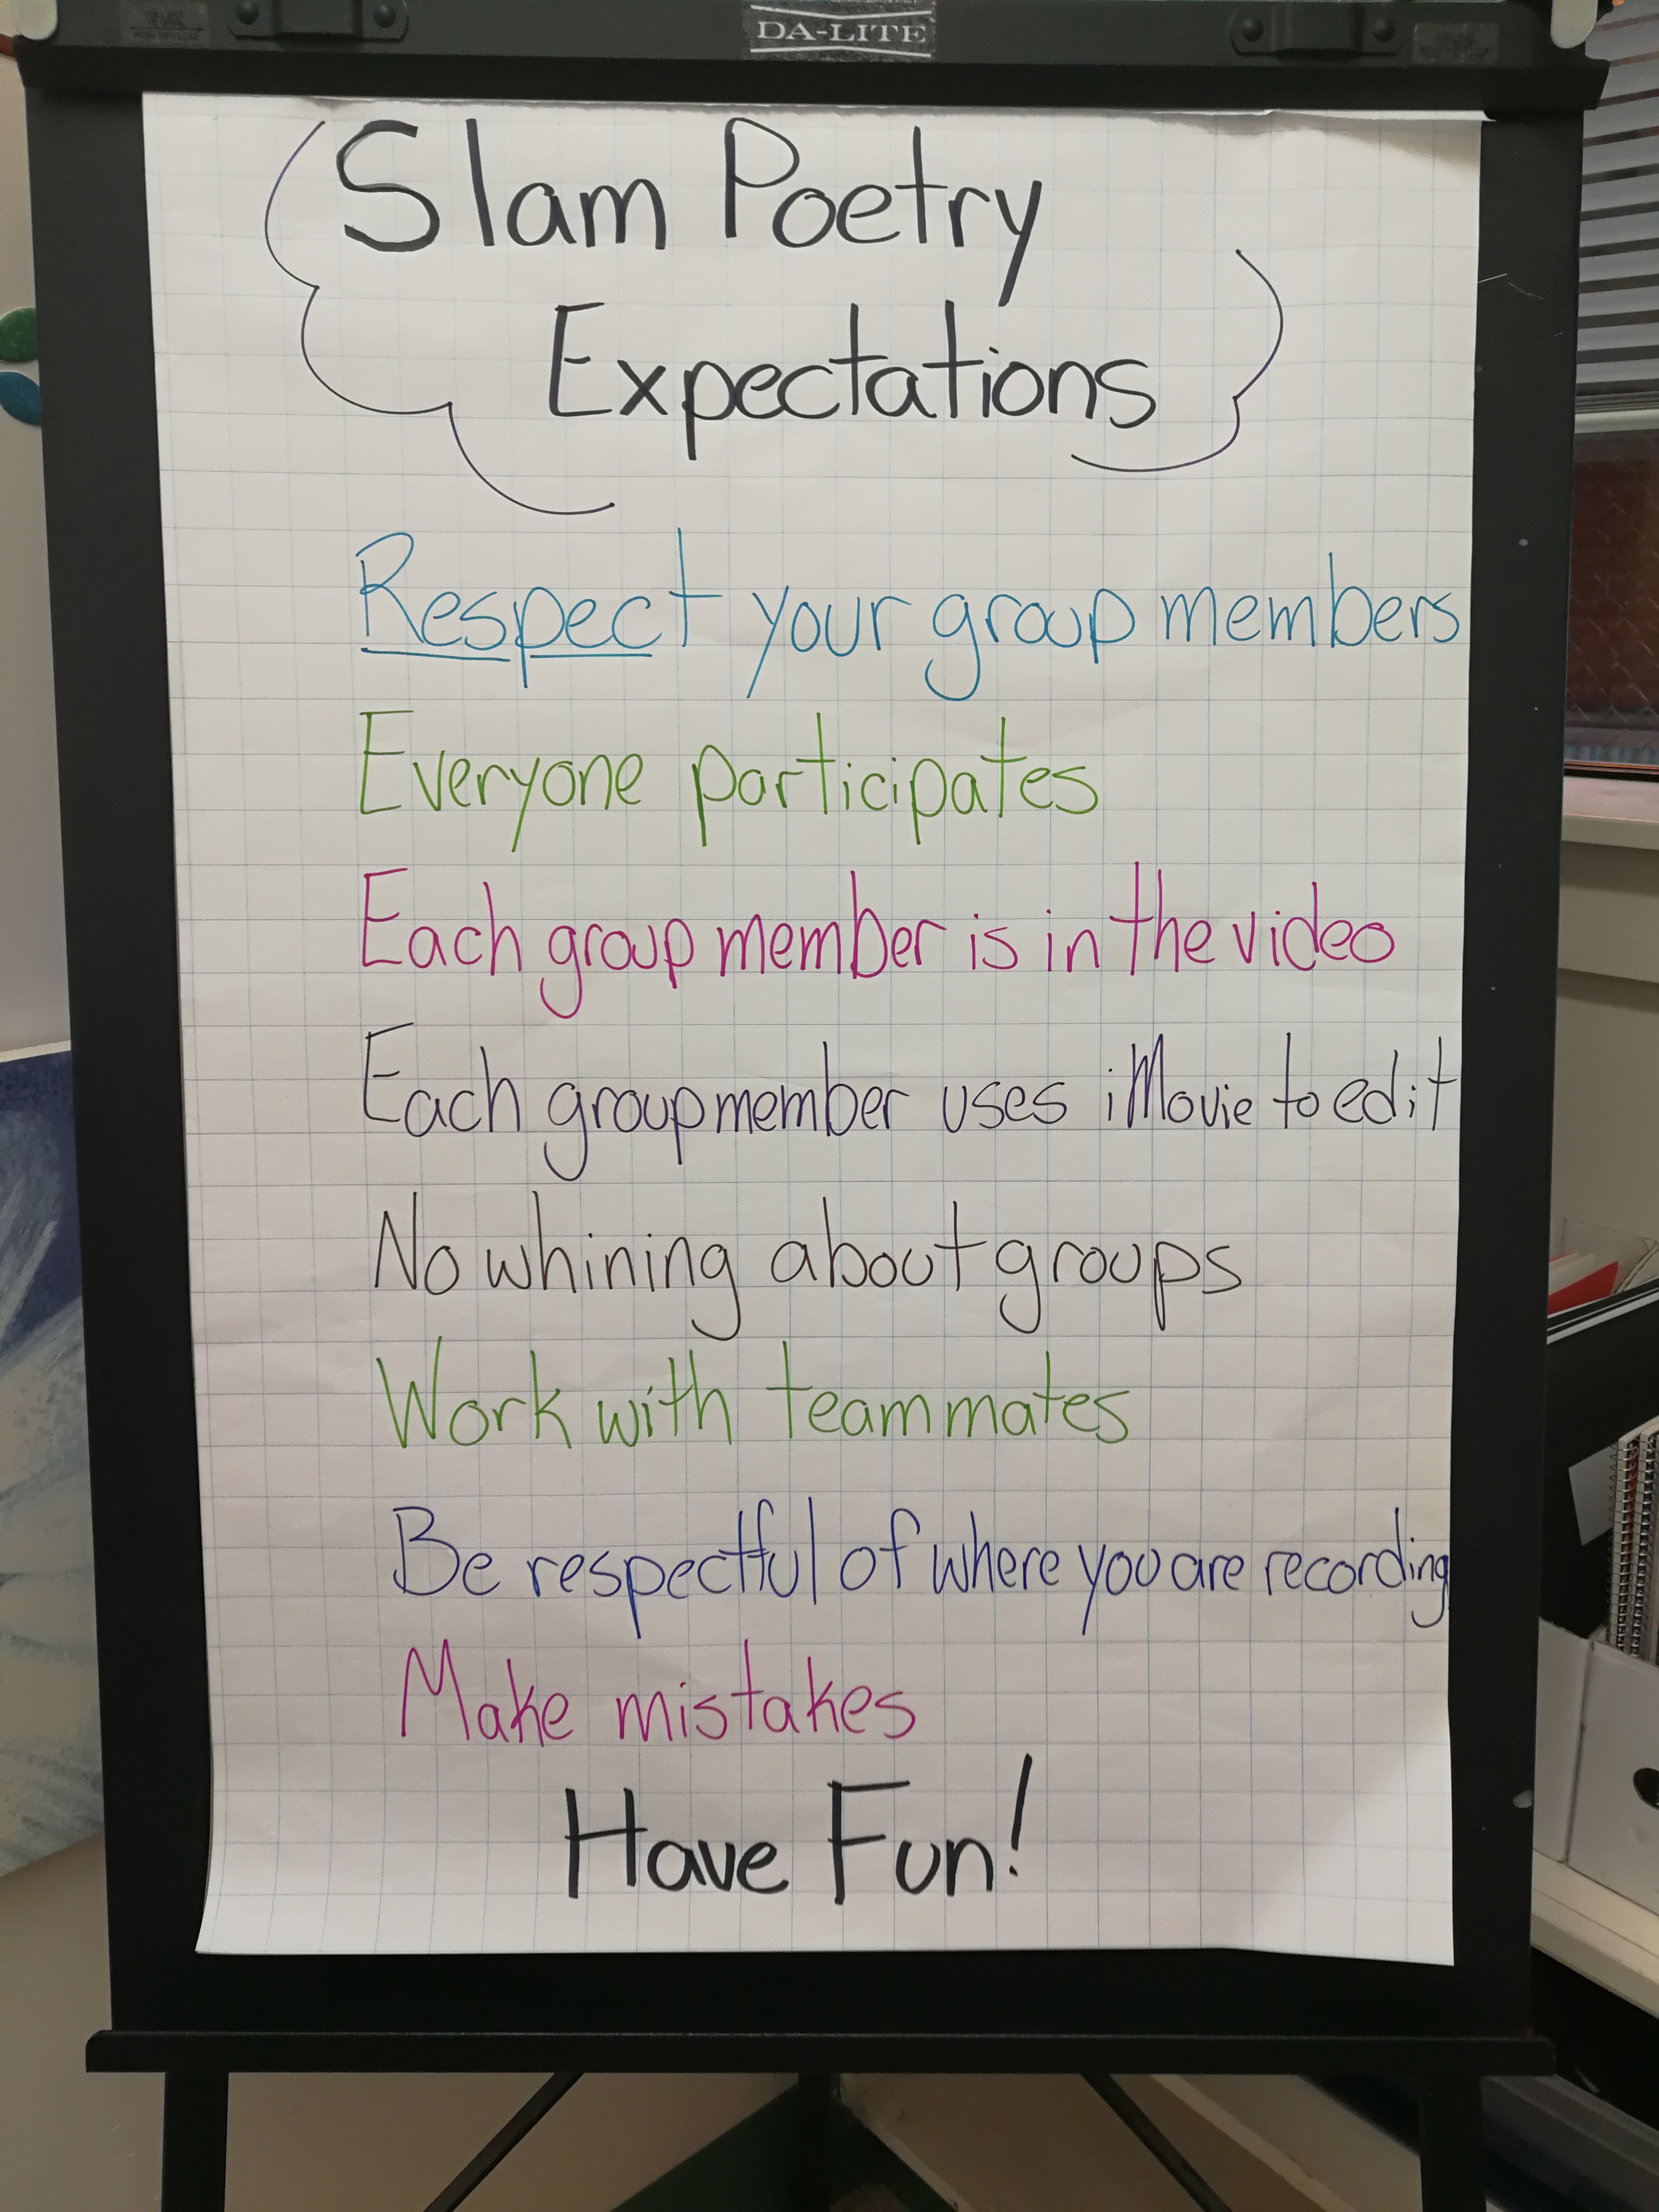 DA-LITE
Slam Poetry
Expectations
Respect your group members
Everyone participates
Each group member is in the video
Each group member uses iMovie to edit
No whining about groups
Work with teammates
Be respectful of where you are recording
Make mistakes
Have Fun!